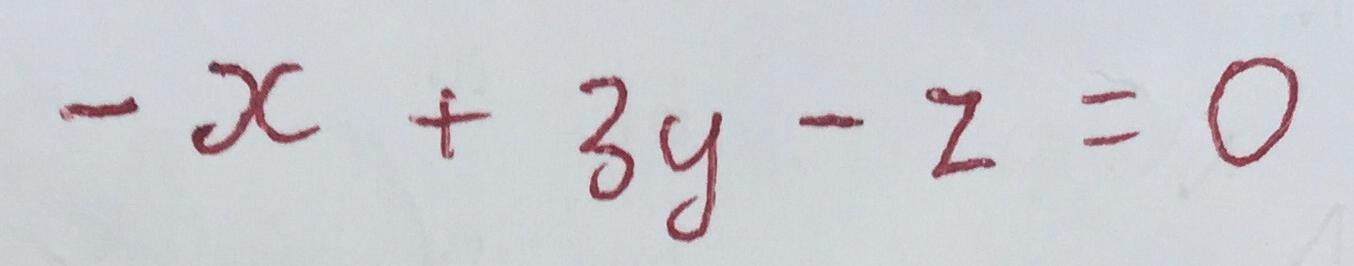 - x + 3y - z = 0